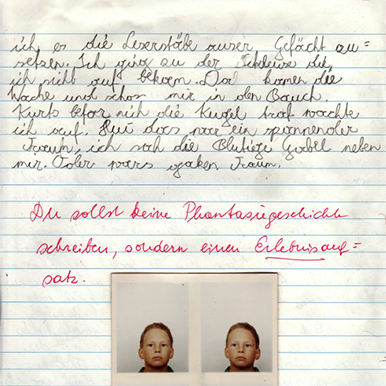 ich es die Leserstäbe auser Gefächt zu=
setzen. Ich ging zu der Schleuse die
ich nicht auf bekom. Dan kamen die
Wache und schos mir in den Bauch.
Kurts befor mich die Kugel traf wachte
ich auf. Hui das war ein spannender
Traum, ich sah die Blutige Gabel neben
mir. Oder wars gaken Traum.
Du sollst keine Phantasiegeschichte
schreiben, sondern einen Erlebnisauf=
satz.